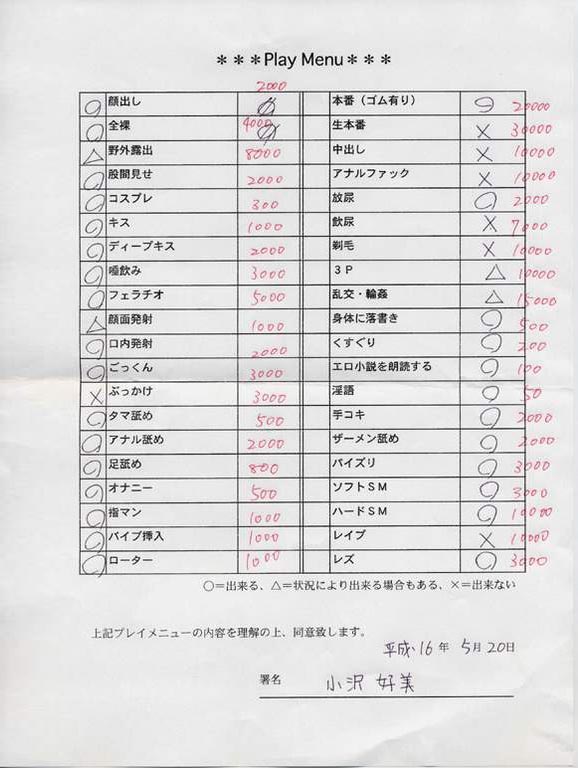 ＊＊＊Play Menu＊＊＊
2000
○ 顔出し ○ 本番（ゴム有り） ○ 20000
○ 全裸 4000 ○ 生本番 × 30000
△ 野外露出 8000 中出し × 10000
○ 股間見せ 2000 アナルファック × 10000
○ コスプレ 300 放尿 ○ 2000
○ キス 1000 飲尿 × 7000
○ ディープキス 2000 剃毛 × 10000
○ 唾飲み 3000 ３Ｐ △ 10000
○ フェラチオ 5000 乱交・輪姦 △ 15000
△ 顔面発射 1000 身体に落書き ○ 500
○ 口内発射 2000 くすぐり ○ 200
○ ごっくん 3000 エロ小説を朗読する ○ 100
× ぶっかけ 3000 淫語 ○ 50
○ タマ舐め 500 手コキ ○ 2000
○ アナル舐め 2000 ザーメン舐め ○ 2000
○ 足舐め 800 パイズリ ○ 3000
○ オナニー 500 ソフトＳＭ ○ 3000
○ 指マン 1000 ハードＳＭ ○ 10000
○ バイブ挿入 1000 レイプ × 10000
○ ローター 1000 レズ ○ 3000
○＝出来る、△＝状況により出来る場合もある、×＝出来ない
上記プレイメニューの内容を理解の上、同意致します。
平成16年 5月20日
署名 小沢 好美